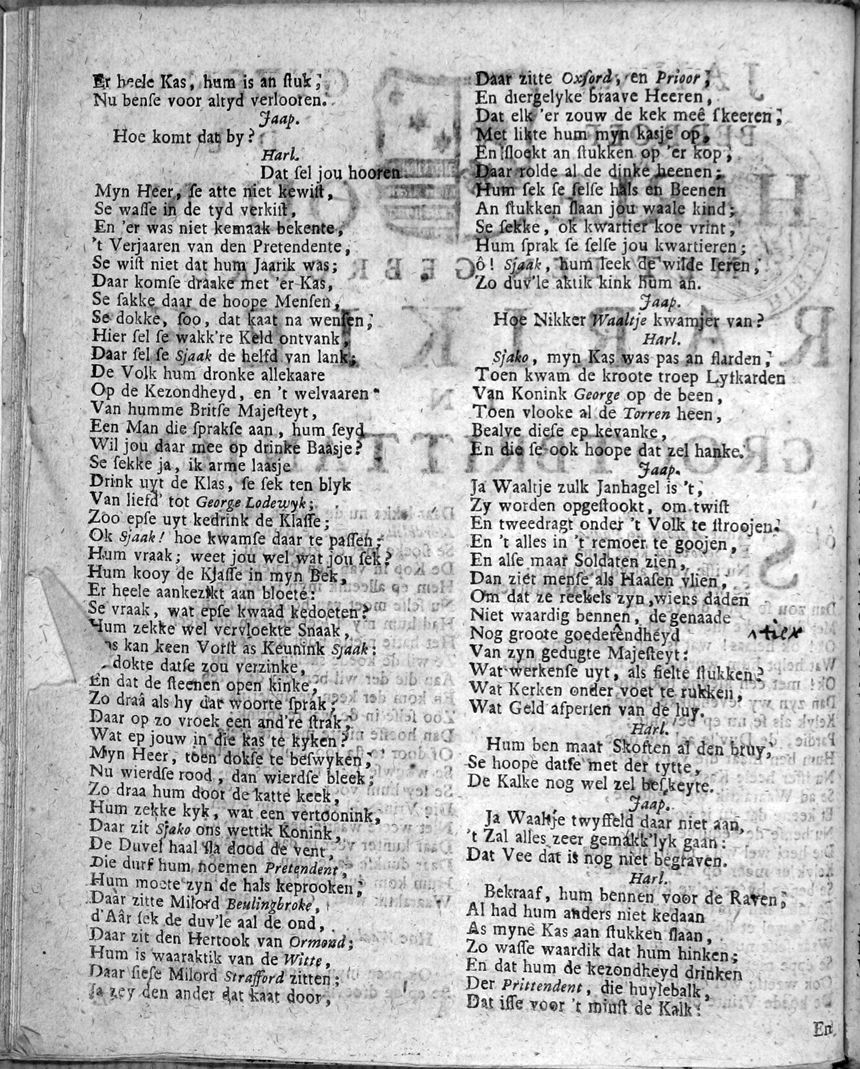 Er heele Kas, hum is an ſtuk;
Nu benſe voor altyd verlooren.
Jaap.
Hoe komt dat by?
Harl.
Dat ſel jou hooren
Myn Heer, ſe atte niet kewiſt,
Se waſſe in de tyd verkiſt,
En 'er was niet kemaak bekente,
't Verjaaren van den Pretendente,
Se wiſt niet dat hum Jaarik was;
Daar komſe draake met 'er Kas,
Se ſakke daar de hoope Menſen,
Se dokke, ſoo, dat kaat na wenſen;
Hier ſel ſe wakk're Keld ontvank,
Daar ſel ſe Sjaak de helfd van lank;
De Volk hum dronke allekaare
Op de Kezondheyd, en 't welvaaren
Van humme Britſe Majeſteyt,
Een Man die ſprakſe aan, hum ſeyd
Wil jou daar mee op drinke Baasje?
Se ſekke ja, ik arme laasje
Drink uyt de Klas, ſe ſek ten blyk
Van liefd' tot George Lodewyk;
Zoo epſe uyt kedrink de Klaſſe;
Ok Sjaak! hoe kwamſe daar te paſſen;
Hum vraak; weet jou wel wat jou ſek?
Hum kooy de Klaſſe in myn Bek,
Er heele aankezikt aan bloete:
Se vraak, wat epſe kwaad kedoeten?
Hum zekke wel vervloekte Snaak,
kan keen Vorſt as Keunink Sjaak:
dokte datſe zou verzinke,
En dat de ſteenen open kinke,
Zo draâ als hy dat woorte ſprak;
Daar op zo vroek een and're ſtrak,
Wat ep jouw in die kas te kyken?
Myn Heer, toen dokſe te beſwyken,
Nu wierdſe rood, dan wierdſe bleek;
Zo draa hum door de katte keek,
Hum zekke kyk, wat een vertoonink,
Daar zit Sjako ons wettik Konink,
De Duvel haal ſla dood de vent,
Die durf hum noemen Pretendent,
Hum moete zyn de hals keprooken;
Daar zitte Milord Beulingbroke,
d'Aâr ſek de duv'le aal de ond,
Daar zit den Hertook van Ormond;
Hum is waaraktik van de Witte,
Daar ſieſe Milord Strafford zitten;
Ja zey den ander dat kaat door,
Daar zitte Oxford, en Prioor,
En diergelyke braave Heeren,
Dat elk 'er zouw de kek meê ſkeeren;
Met likte hum myn kasje op,
En ſloekt an ſtukken op 'er kop,
Daar rolde al de dinke heenen;
Hum ſek ſe ſelſe hals en Beenen
An ſtukken ſlaan jou waale kind;
Se ſekke, ok kwartier koe vrint,
Hum ſprak ſe ſelſe jou kwartieren;
ô! Sjaak, hum leek de wilde Ieren,
Zo duv'le aktik kink hum an.
Jaap.
Hoe Nikker Waaltje kwamjer van?
Harl.
Sjako, myn Kas was pas an flarden,
Toen kwam de kroote troep Lyfkarden
Van Konink George op de been,
Toen vlooke al de Torren heen,
Bealve dieſe ep kevanke,
En die ſe ook hoope dat zel hanke.
Jaap.
Ja Waaltje zulk Janhagel is 't,
Zy worden opgeſtookt, om twiſt
En tweedragt onder 't Volk te ſtroojen,
En 't alles in 't remoer te goojen,
En alſe maar Soldaten zien,
Dan ziet menſe als Haaſen vlien,
Om dat ze reekels zyn, wiens daden
Niet waardig bennen, de genaade
Nog groote goederendheyd
Van zyn gedugte Majeſteyt:
Wat werkenſe uyt, als fielte ſtukken?
Wat Kerken onder voet te rukken,
Wat Geld afperſen van de luy.
Harl.
Hum ben maar Skoften al den bruy,
Se hoope datſe met der tytte,
De Kalke nog wel zel beſkeyte.
Jaap.
Ja Waaltje twyffeld daar niet aan,
't Zal alles zeer gemakk'lyk gaan:
Dat Vee dat is nog niet begraven.
Harl.
Bekraaf, hum bennen voor de Raven;
Al had hum anders niet kedaan
As myne Kas aan ſtukken ſlaan,
Zo waſſe waardik dat hum hinken;
En dat hum de kezondheyd drinken
Der Prittendent, die huylebalk,
Dat iſſe voor 't minſt de Kalk:
En